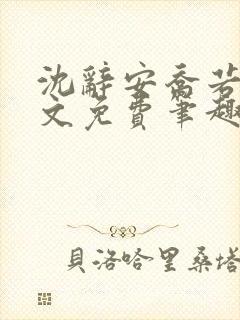 沈辭安喬若
文免費筆趣
貝洛哈里桑塔